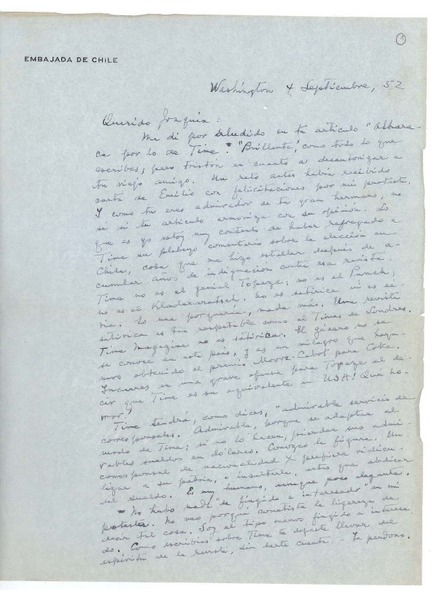 EMBAJADA DE CHILE
Washington 4 Septiembre, 52
Querido Joaquín:
Me di por aludido en tu artículo
ca por lo de Time". "Brillante", como todo lo que
escribes; pero tristón en cuanto a desautorizar a
tu viejo amigo. Un rato antes había recibido
carta de Emilio con felicitaciones por mi protesta.
Y como tú eres admirador de tu gran hermano, no
sé si tu artículo armoniza con su opinión. Lo
que es yo estoy muy contento de haber refregado a
Time su palabrejo comentario sobre la elección en
Chile, cosa que me hizo estallar después de a-
cumular años de indignación contra esa revista.
Time no es el genial Topaze; no es el Punch;
no es el ni es satírica ni es se-
ria. Es una porquería, nada más. Una revista
satírica es tan respetable como el Times de Londres.
Time Magazine no es satírica. El género no se
conoce en este país, y es un milagro que haya-
mos obtenido el premio Moors-Cabot para Coke.
Incurres en una grave ofensa para Topaze al de-
cir que Time es su equivalente en USA! Qué ho-
rror!
Time tendrá, como dices, "admirable servicio de
corresponsales. Admirable, porque se adaptan al
mundo de Time; si no lo hacen, pierden sus admi-
rables sueldos en dólares. Conozco la figura. Un
corresponsal de nacionalidad X prefiere ridicu-
lizar a su patria, o insultarla, antes que abdicar
del sueldo. Es muy humano, aunque poco elegante.
No hubo nada de fingido e interesado en mi
protesta. No veo porqué cometiste la ligereza de
decir tal cosa. Soy el tipo menos fingido e interesa-
do. Como escribías sobre Time te dejaste llevar del
espíritu de la revista, sin darte cuenta. - Te perdono.